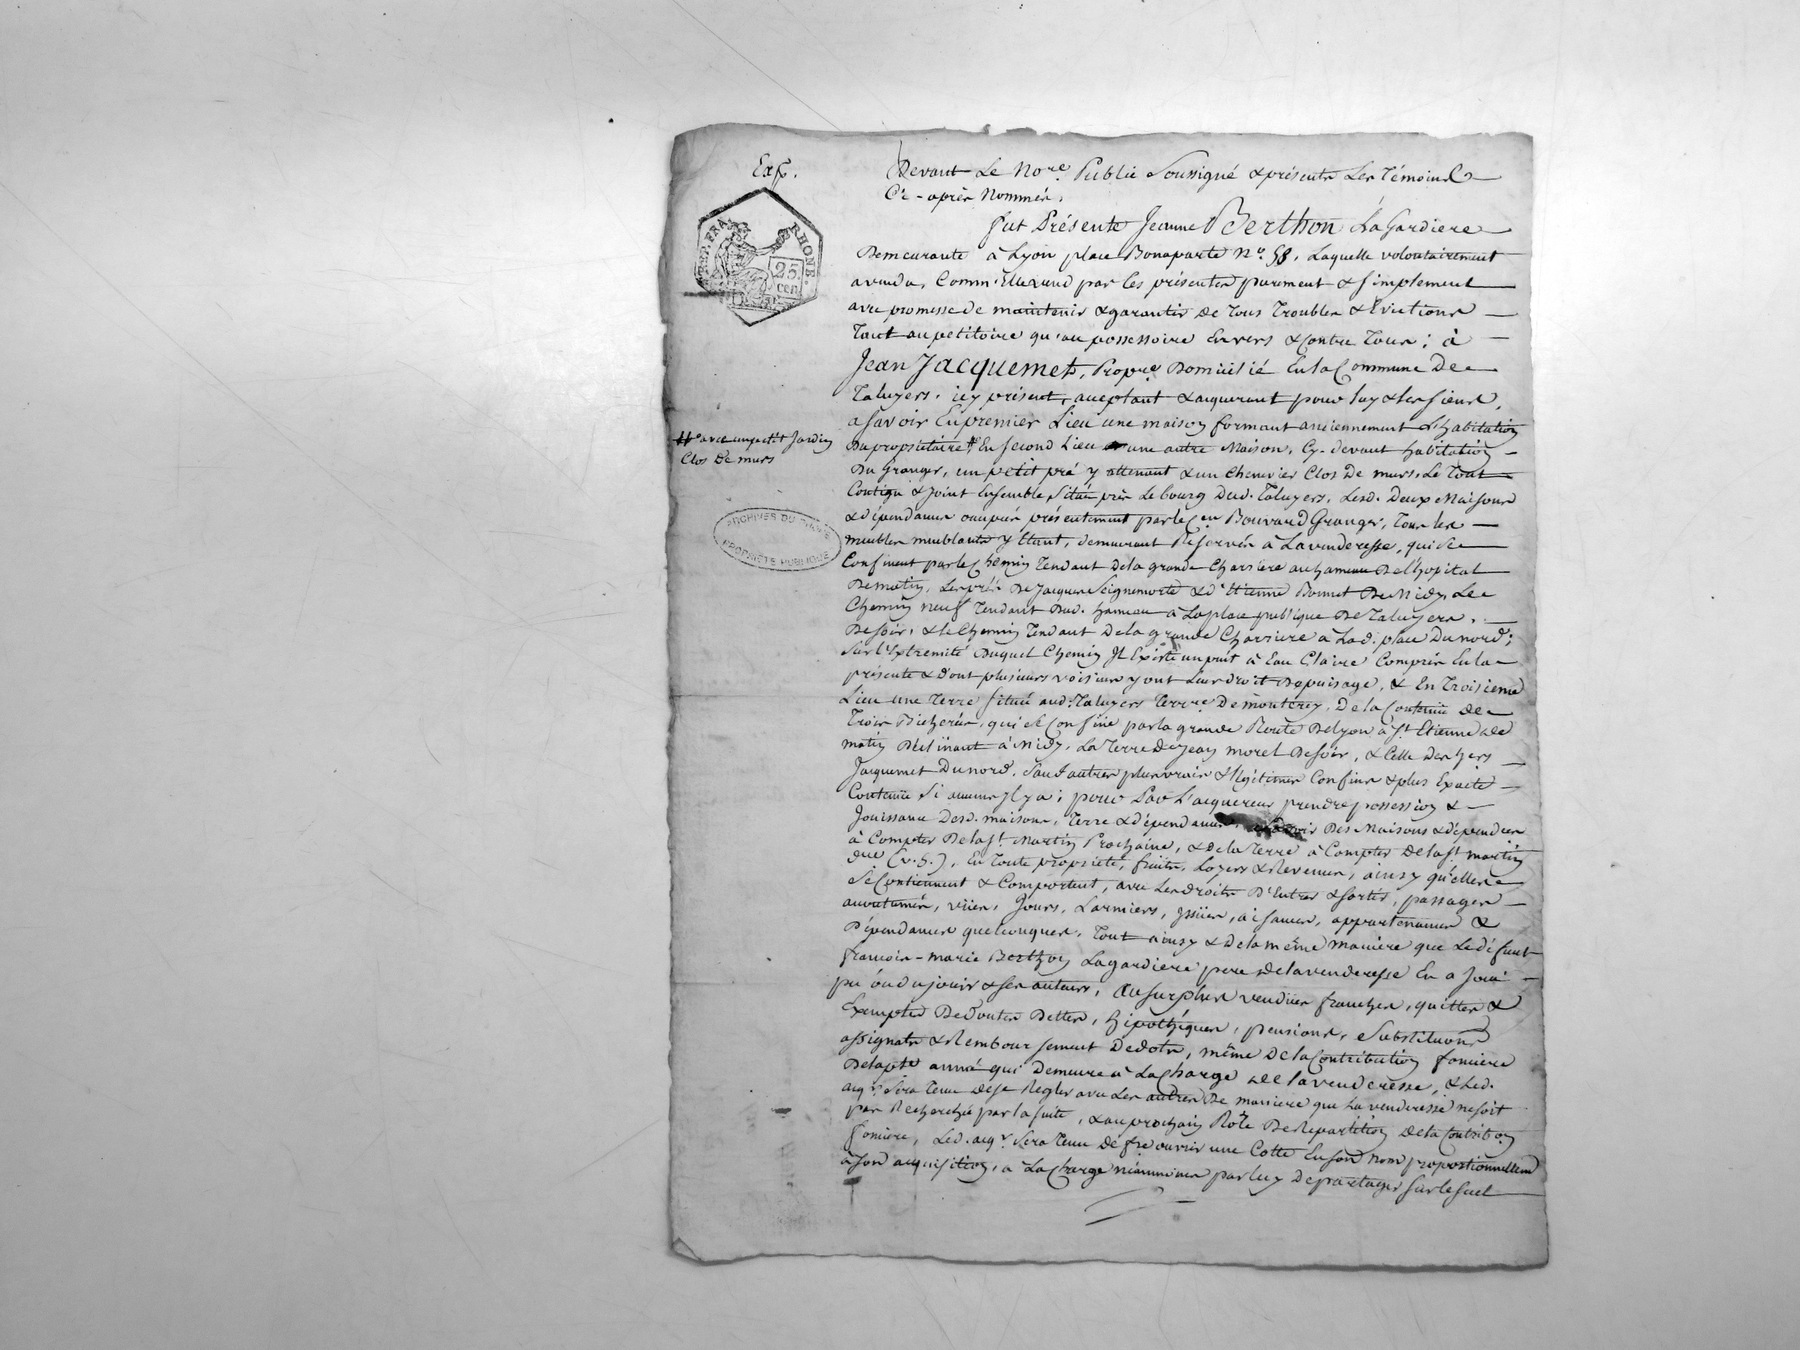 Exp.
Devant Le No.re Public Soussigné & présents Les Témoins
Ci-après Nommés,
REP. FRA.
RHONE.
25
cen
fut Présente Jeanne Berthon Lagardiere
Demeurante à Lyon place Bonaparte N.o 58. Laquelle volontairement
a vendu, Comm'Elle vend par les présentes purement & simplement
avec promesse de maintenir & garantir de Tous Troubles & Evictions
Tant au petitoire qu'au possessoire Envers & Contre Tous; à
Jean Jacquemet, Propre. Domicilié En la Commune De
Taluyers, icy présent, acceptant & acquerant pour luy & les siens,
a savoir En premier Lieu une maison formant anciennement L'habitation
Du propriétaire # En second Lieu une autre Maison, Cy-devant habitation
# avec un petit Jardin
Clos De murs
Du Granger, un petit pré y attenant & un Chenevier Clos De murs, Le Tout
Contigu & Joint Ensemble Situé près Le bourg Dud. Taluyers, Lesd. Deux Maisons
& dépendances occupées présentement par le C.en Bouvard Granger, Tous les
meubles meublants y Etant, demeurant Reservés à La venderesse, qui se
ARCHIVES DU RHONE
PROPRIETE PUBLIQUE
Confinent par le Chemin Tendant De la grande Charriere au hameau De l'hopital
De matin, Les prés De Jacques Seignemorte & d'Etienne Bonnet De Midy, Le
Chemin neuf Tendant Dud. hameau à La place publique De Taluyers,
De soir, & le Chemin Tendant De la grande Charriere à Lad. place Du nord;
Sur l'Extremité Duquel Chemin Il Existe un puit à Eau Claire Compris En la
présente & dont plusieurs voisins y ont Leur droit De puisage, & En Troisieme
Lieu une Terre située aud. Taluyers Terr.re De monterey, De la Contenue De
Trois Bicherées, qui se Confine par la grande Route De Lyon à S.t Etienne De
matin Déclinant à Midy, La Terre De Jean morel De soir, & Celle Des hers
Jacquemet Du nord, Sauf autres plus vrais & Légitimes Confins & plus Exacte
Contenue Si aucune Il y a; pour Par L'acquereur prendre possession &
Jouissance Desd. maisons, Terre & dépendances, Des Maisons & dépendces
à Compter De la S.t Martin Prochaine, & De la Terre à Compter De la S.t martin
due (v. S.), En Toute propriété, fruits, Loyers & Revenus, ainsy qu'elles
Se Contiennent & Comportent, avec Les droits D'Entrer & sortir, passages
accoutumés, vües, Jours, Larmiers, Issües, aisances, appartenances &
Dépendances quelconques, Tout ainsy & De la même maniere que Le défunt
francois-marie Berthon Lagardiere pere De la venderesse En a Joui
pu ou dû jouir & ses auteurs, Au surplus vendües franches, quittes &
Exemptes De Toutes Dettes, hipothéques, pensions, Substitutions
assignats & Remboursement De dots, même De la Contribution fonciere
De la pte année qui Demeure à La Charge De la venderesse, & Led.
acq.r Sera Tenu De se Regler avec Les autres De maniere que La venderesse ne soit
pas Recherchée par la suite, & au prochain Rôle De Repartition De la Contribon
fonciere, Led. acq.r Sera Tenu De faire ouvrir une Cotte En son Nom proportionnellemt
à son acquisition, à La Charge néanmoins par luy De partager sur le suel